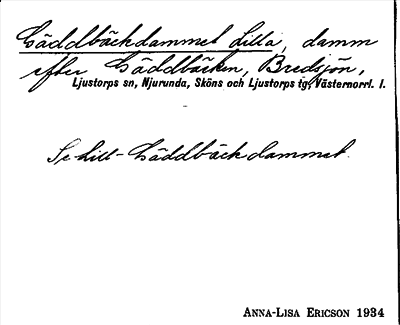 Gäddbäckdammet Lilla, damm
efter Gäddbäcken, Bredsjön,
Ljustorps sn, Njurunda, Sköns och Ljustorps tg, Västernorrl. l.
Se Lill-Gäddbäckdammet.
ANNA-LISA ERICSON 1934